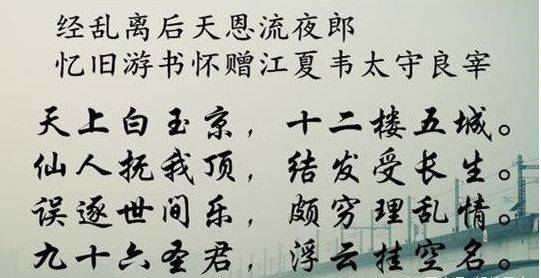 经乱离后天恩流夜郎
忆旧游书怀赠江夏韦太守良宰
天上白玉京，十二楼五城。
仙人抚我顶，结发受长生。
误逐世间乐，颇穷理乱情。
九十六圣君，浮云挂空名。